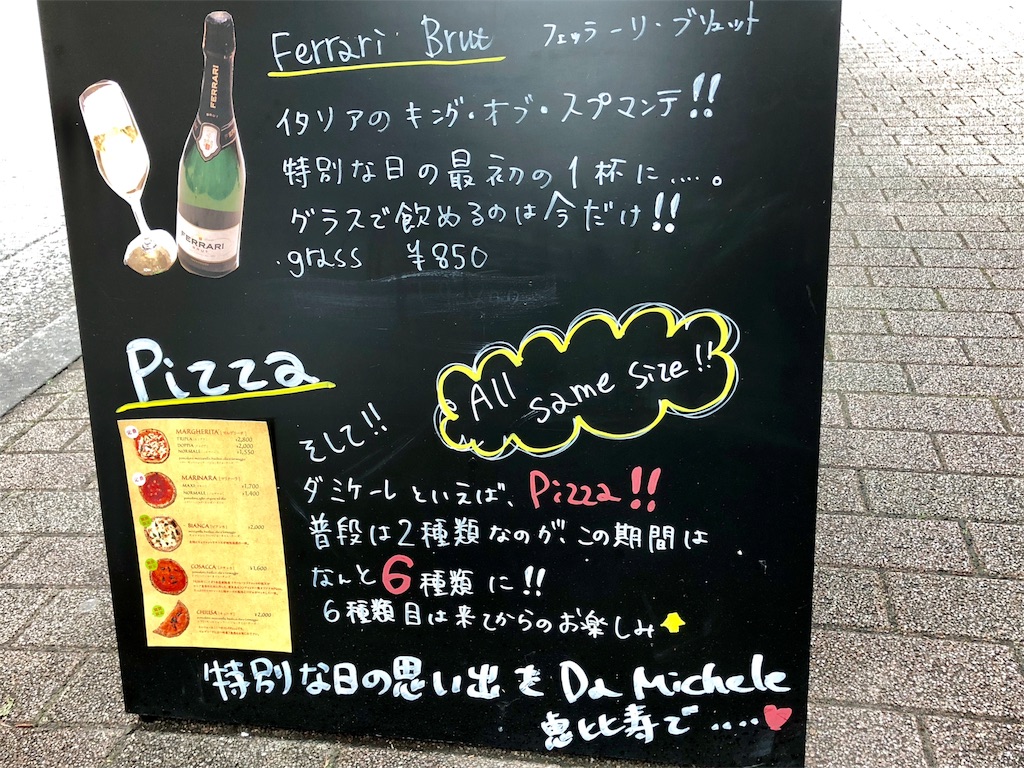 Ferrari Brut フェッラーリ・ブリュット
イタリアのキング・オブ・スプマンテ!!
特別な日の最初の1杯に.....。
グラスで飲めるのは今だけ!!
grass ¥850
FERRARI
FERRARI
Pizza
All same size!!
MARGHERITA
TRIPLA ¥2,600
DOPPIA ¥2,000
NORMALE ¥1,550
MARINARA
MAXI ¥1,700
NORMALE ¥1,400
BIANCA ¥2,000
COSACCA ¥1,600
¥2,000
そして!!
ダミケーレといえば、Pizza!!
普段は2種類なのが、この期間は
なんと6種類に!!
6種類目は来てからのお楽しみ
特別な日の思い出を Da Michele
恵比寿で.....